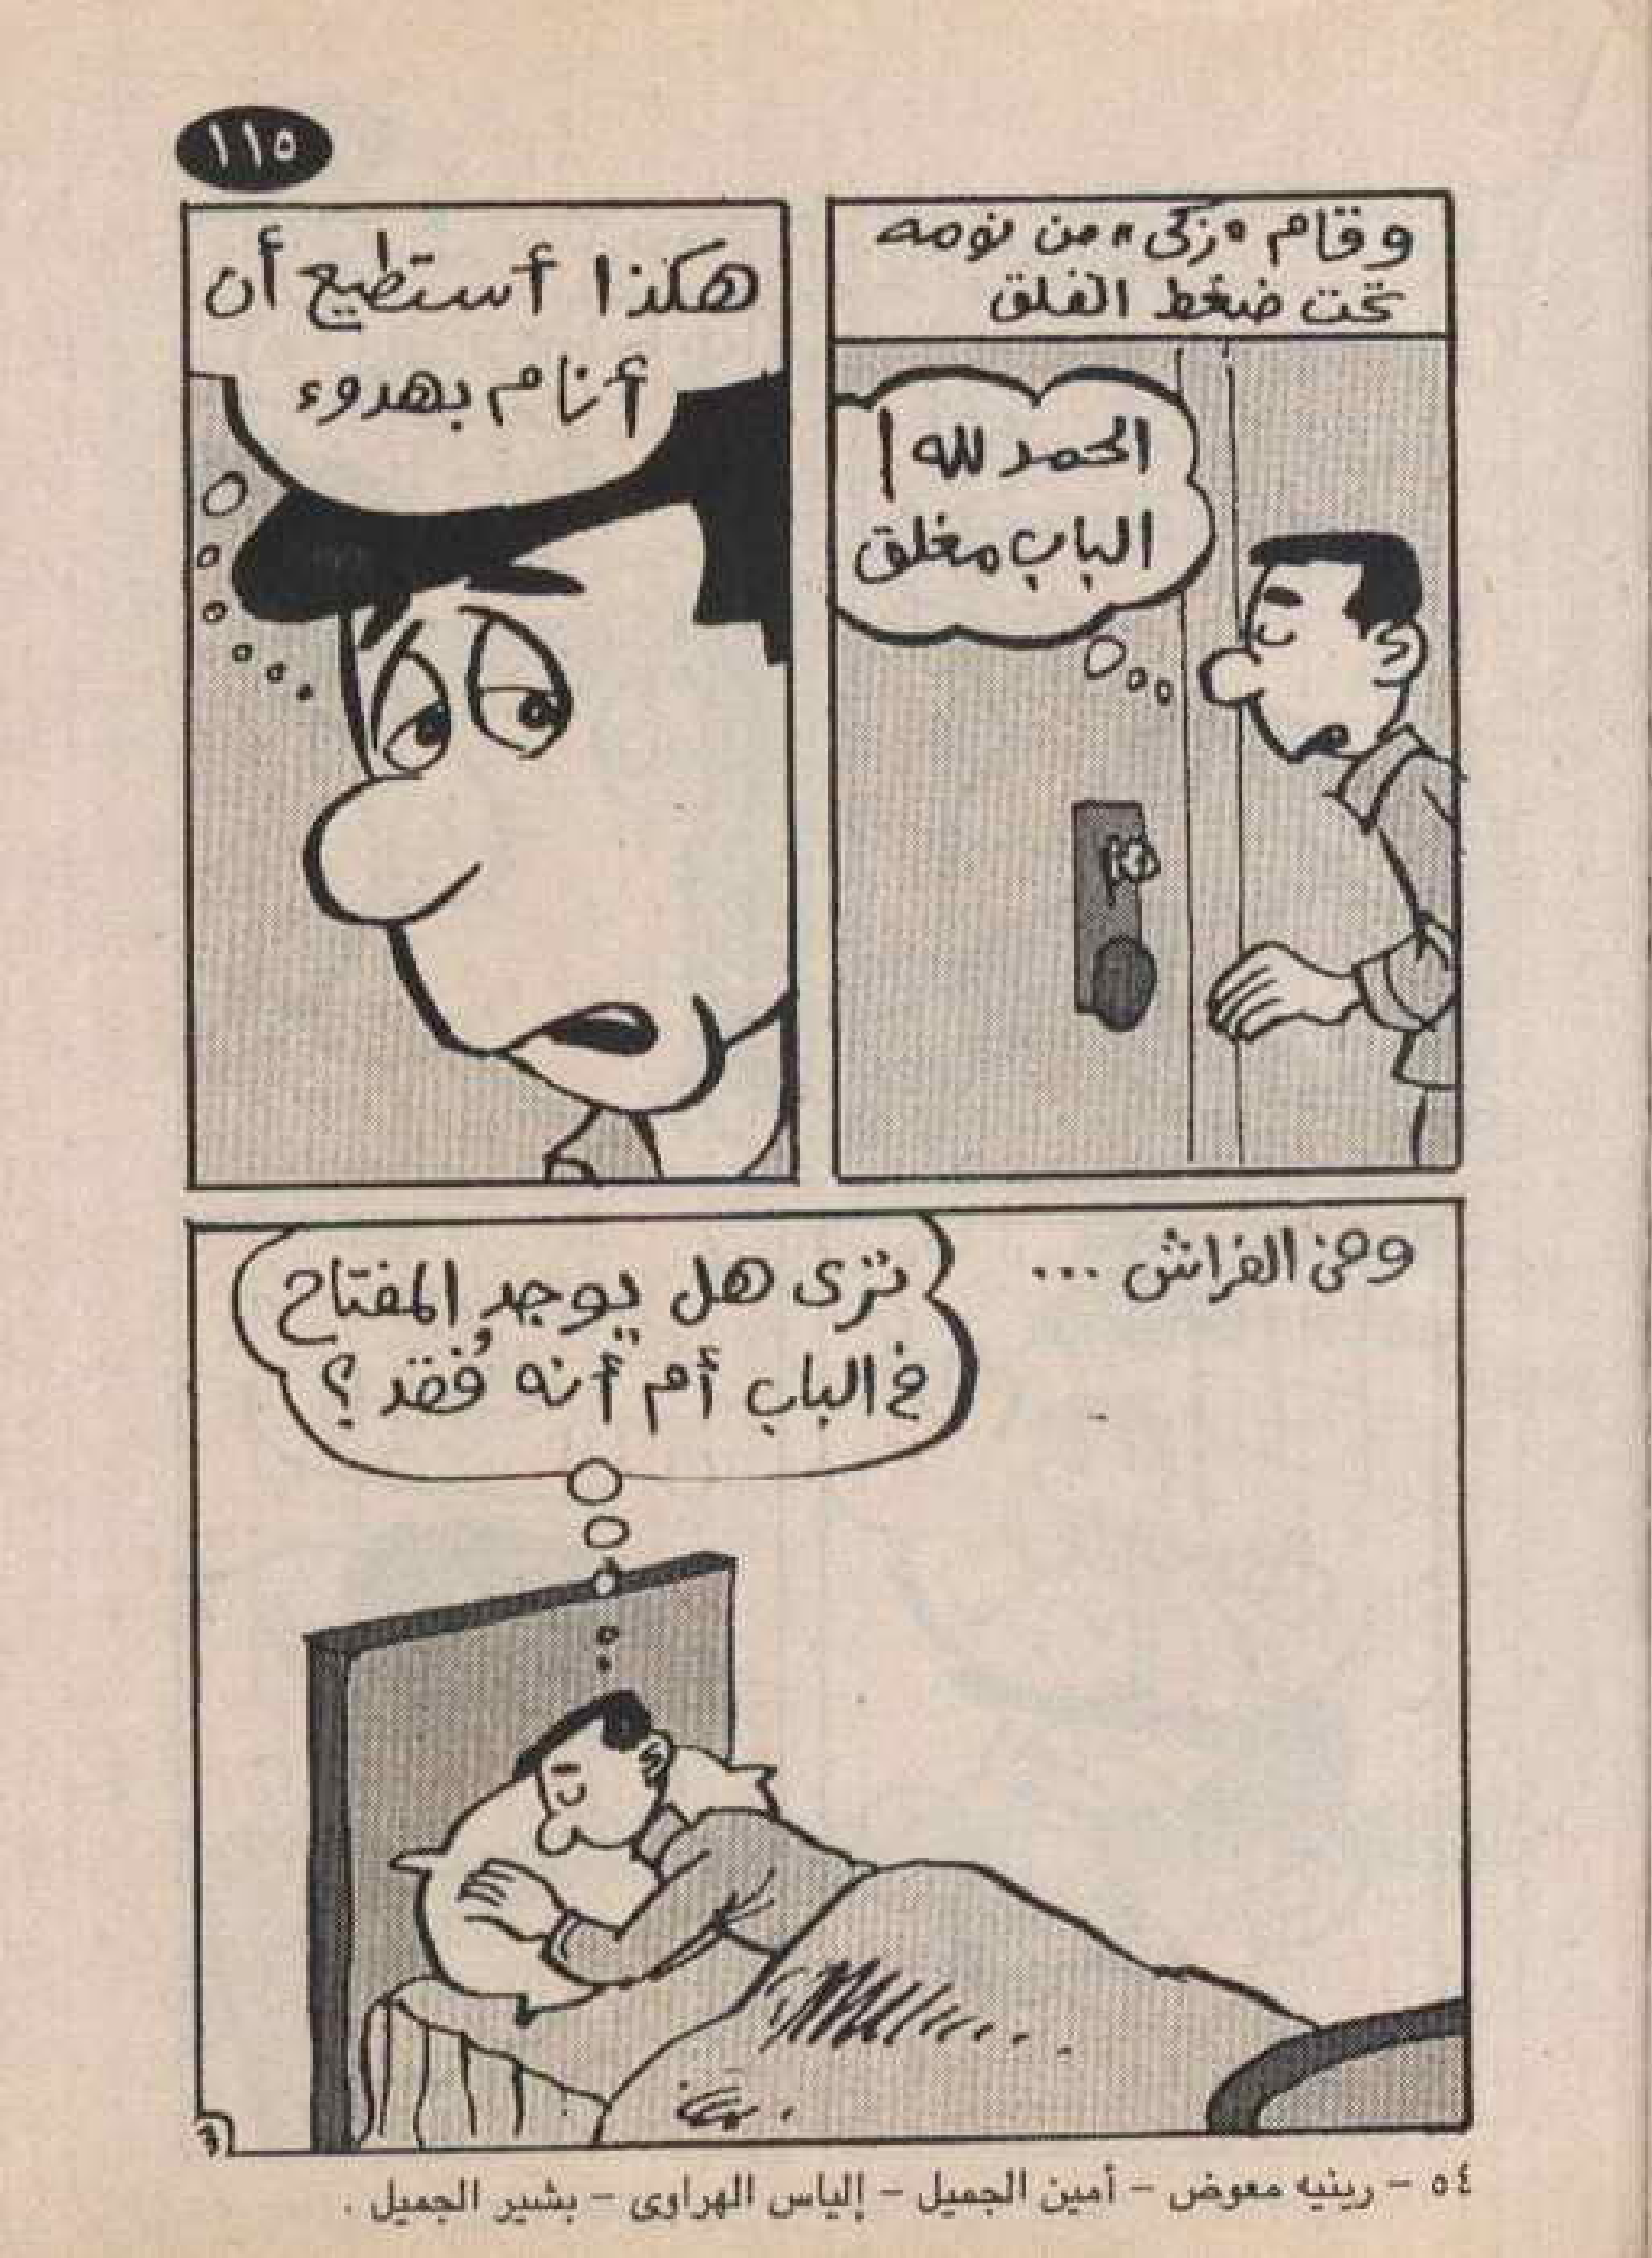 ١١٥
وقام «زكى» من نومه
تحت ضغط القلق
الحمد لله!
الباب مغلق
هكذا أستطيع أن
أنام بهدوء
وفى الفراش ...
ترى هل يوجد المفتاح
فى الباب أم أنه فُقد؟
٣
٥٤ - رينيه معوض - أمين الجميل - إلياس الهراوى - بشير الجميل .